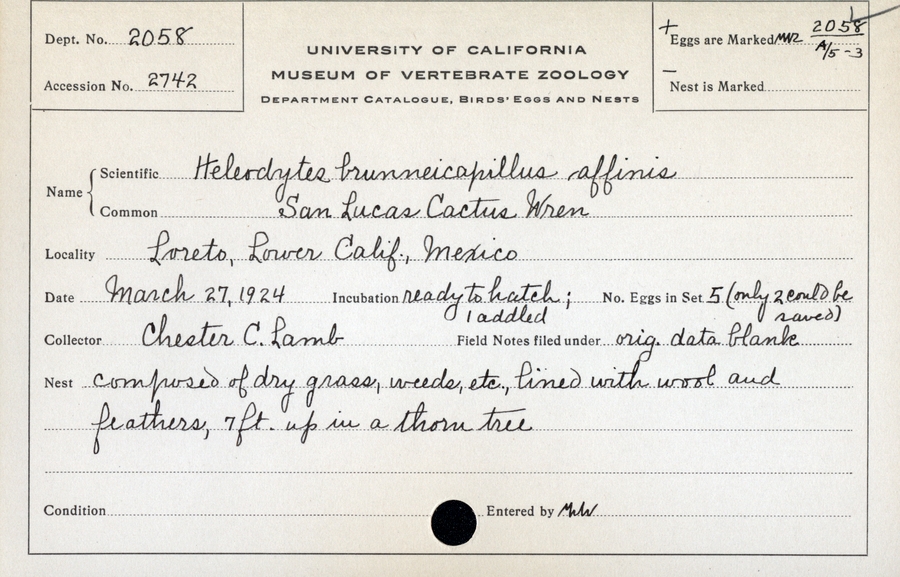 Dept. No. 2058
Accession No. 2742
UNIVERSITY OF CALIFORNIA
MUSEUM OF VERTEBRATE ZOOLOGY
DEPARTMENT CATALOGUE, BIRDS' EGGS AND NESTS
+ Eggs are Marked 2058
A/5-3
— Nest is Marked
Name { Scientific Heleodytes brunneicapillus affinis
Common San Lucas Cactus Wren
Locality Loreto, Lower Calif., Mexico
Date March 27, 1924 Incubation ready to hatch; No. Eggs in Set 5 (only 2 could be
1 addled saved)
Collector Chester C. Lamb Field Notes filed under orig. data blank
Nest composed of dry grass, weeds, etc., lined with wool and
feathers, 7 ft. up in a thorn tree
Condition Entered by